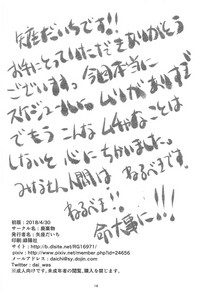 矢座だいちです!!
お手にとっていただきありがとう
ございますっ 今回本当に
スケジュールにムリがありすぎ
でもうこんなムチャなことは
しないぞと心にちかいました。
みなさん人間はねるべきです。
ねるべき!!
命大事に!!!
初版:2018/4/30
サークル名:産業物
発行者名:矢座だいち
印刷:緑陽社
ブログ:http://b.dlsite.net/RG16971/
pixiv:http://www.pixiv.net/member.php?id=24656
メールアドレス:daiichi@sy.dojin.com
Twitter:dai_was
三成人向けです。未成年者の閲覧、購入を禁じます。